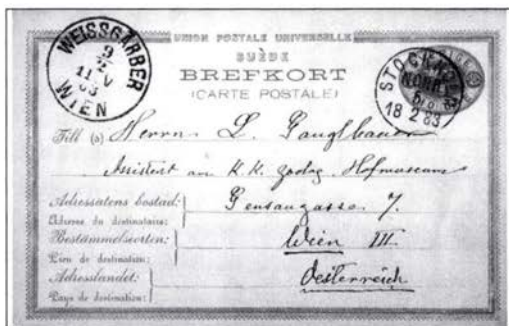 UNION POSTALE UNIVERSELLE
SUÈDE
BREFKORT
(CARTE POSTALE)
WEISSGÄRBER
9
2
11 V
83
WIEN
STOCKHOLM
NORR
18 2 83
Till (à) Herrn L. Ganglbauer
Assistent am K.K. zoolog. Hofmuseum
Adressatens bostad:
Adresse du destinataire:
Gensaugasse 7.
Bestämmelseorten:
Lieu de destination:
Wien III.
Adresslandet:
Pays de destination:
Oesterreich